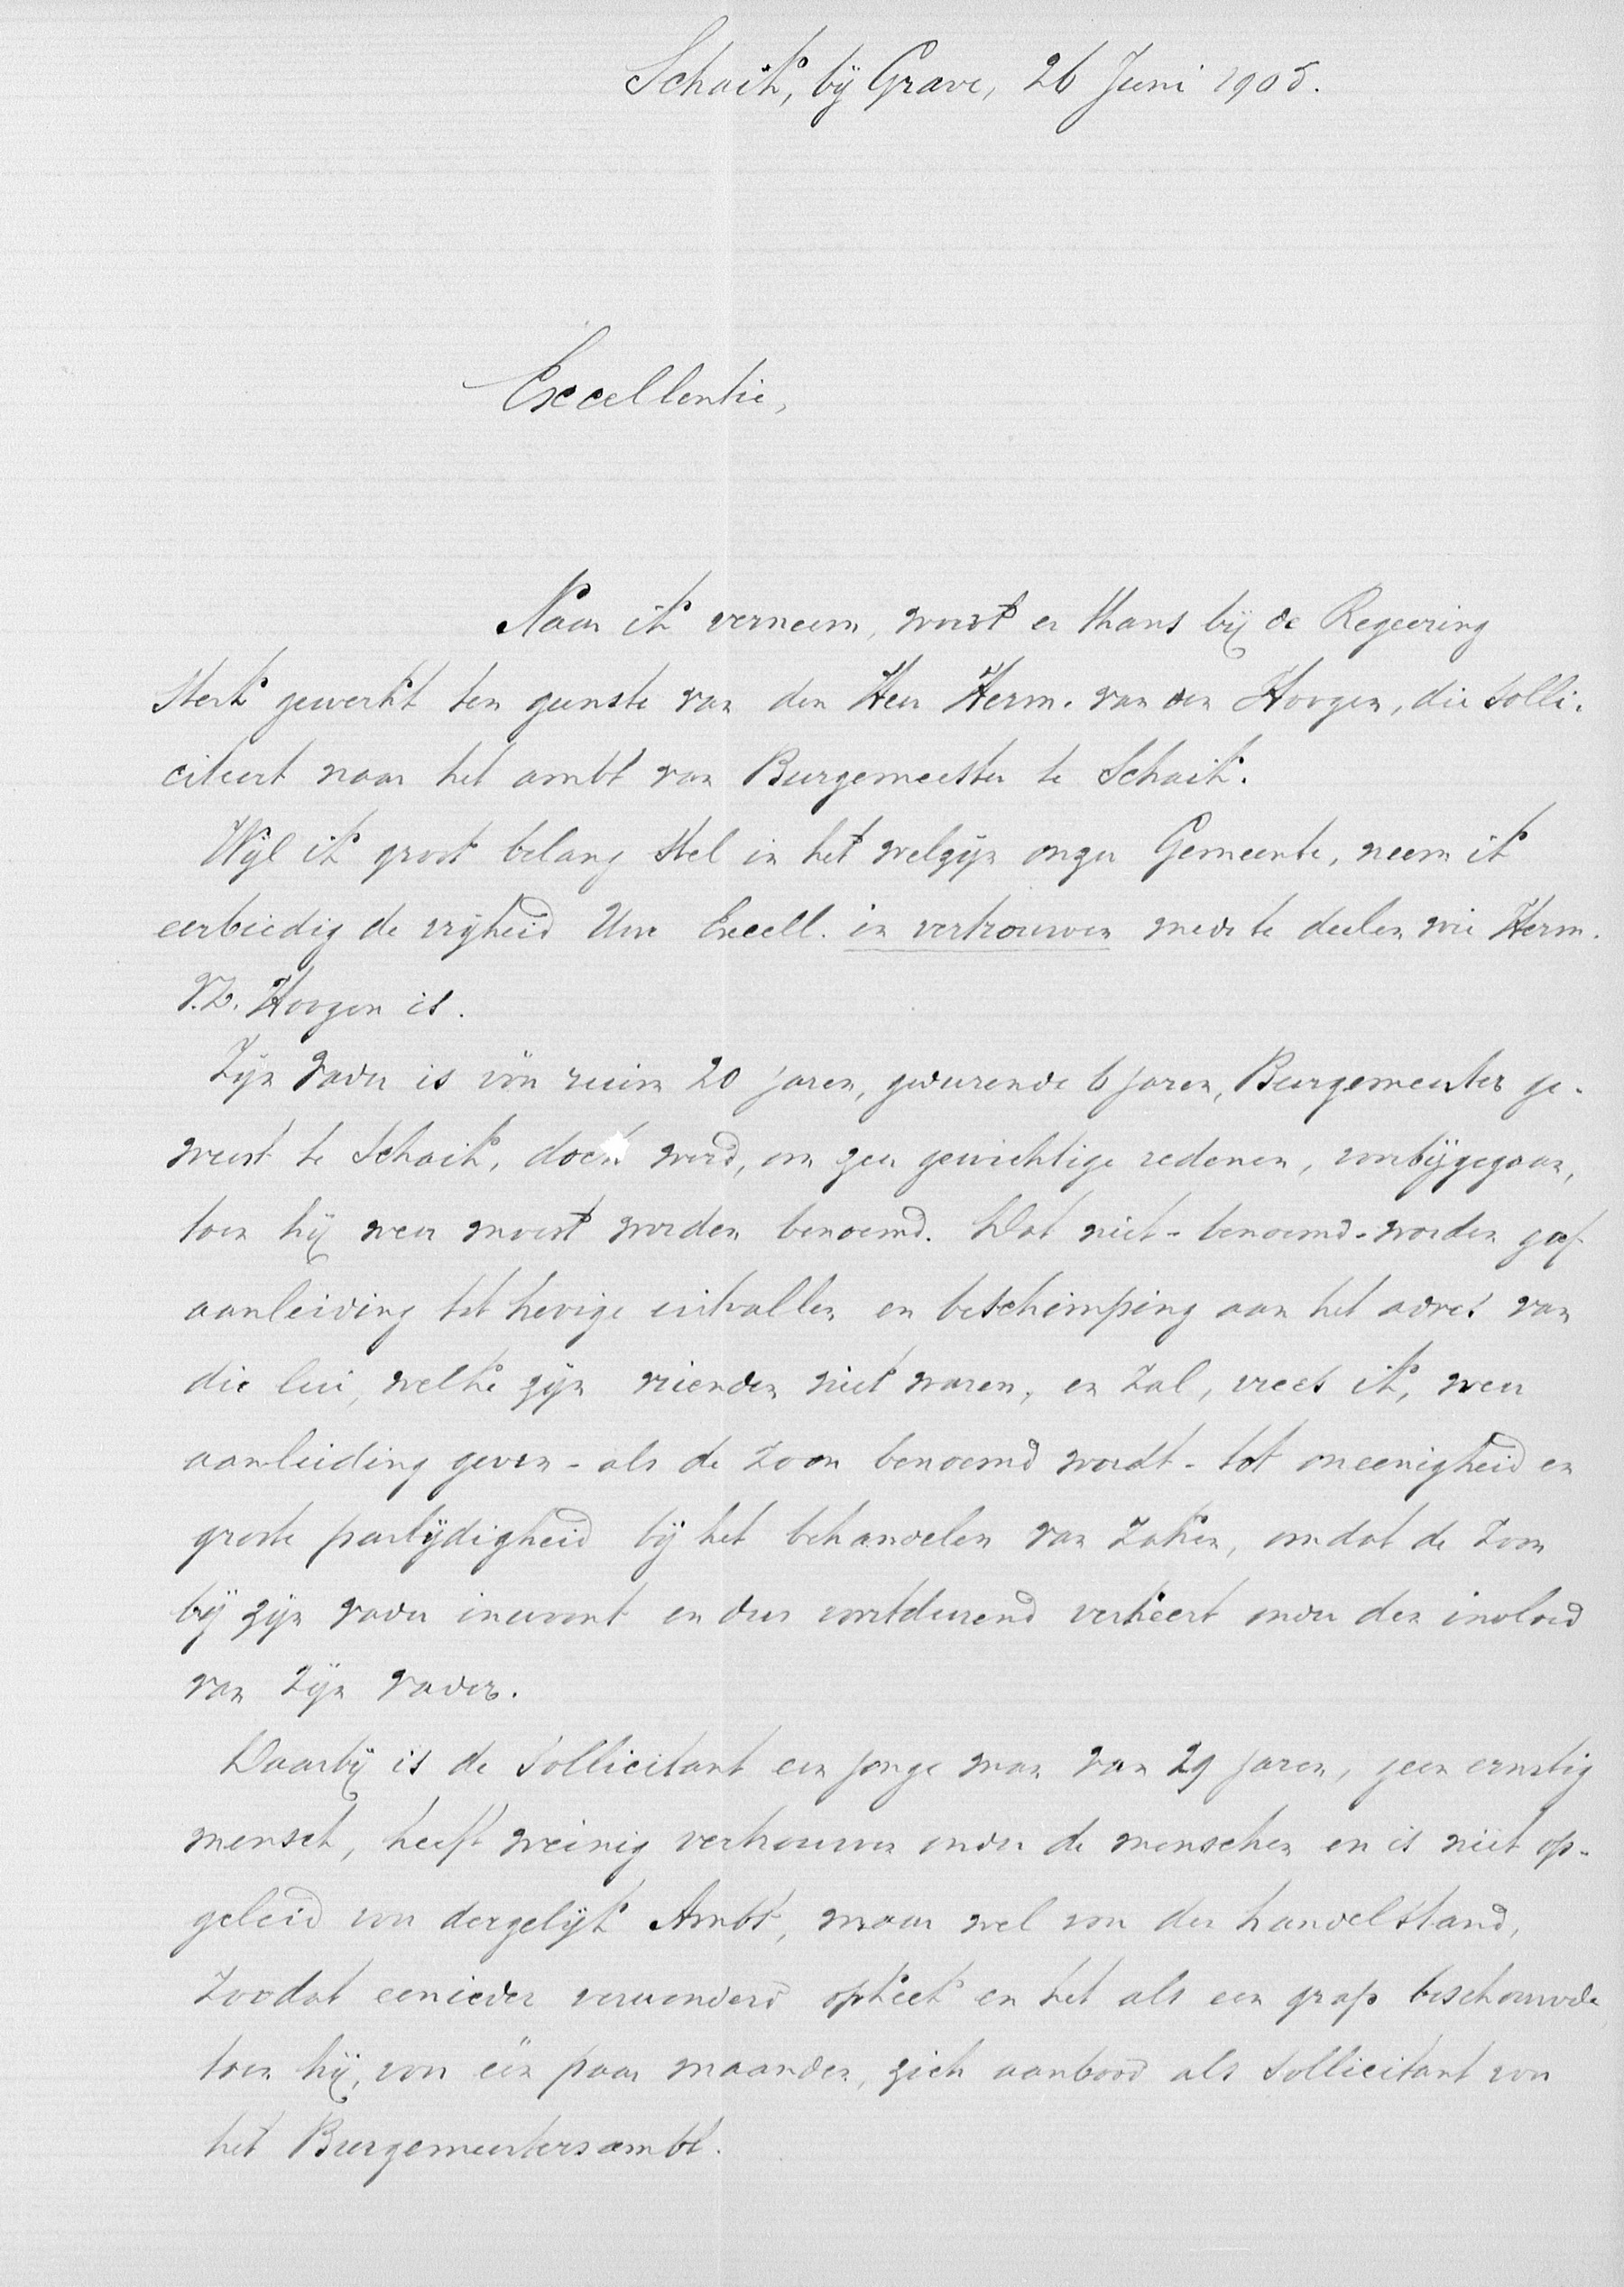 Schaik, bij Grave, 26 Juni 1905.
Excellentie,
Naar ik verneem, wordt er thans bij de Regeering
sterk gewerkt ten gunste van den Heer Herm. van den Hoogen, die solli-
citeert naar het ambt van Burgemeester te Schaik.
Wijl ik groot belang stel in het welzijn onzer Gemeente, neem ik
eerbiedig de vrijheid Uwe Excell. in vertrouwen mede te deelen wie Herm.
v.d. Hoogen is.
Zijn vader is vóór ruim 20 jaren, gedurende 6 jaren, Burgemeester ge-
weest te Schaik, doch werd, om zeer gewichtige redenen, voorbijgegaan,
toen hij weer moest worden benoemd. Dat niet-benoemd-worden gaf
aanleiding tot hevige uitvallen en beschimping aan het adres van
die lui, welke zijn vrienden niet waren, en zal, vrees ik, weer
aanleiding geven - als de zoon benoemd wordt - tot oneenigheid en
groote partijdigheid bij het behandelen van zaken, omdat de zoon
bij zijn vader inwoont en dus voortdurend verkeert onder den invloed
van zijn vader.
Daarbij is de sollicitant een jonge man van 29 jaren, geen ernstig
mensch, heeft weinig vertrouwen onder de menschen en is niet op-
geleid voor dergelijk Ambt, maar wel voor den handelstand,
zoodat eenieder verwonderd opkeek en het als een grap beschouwde
toen hij, voor één paar maanden, zich aanbood als sollicitant voor
het Burgemeestersambt.